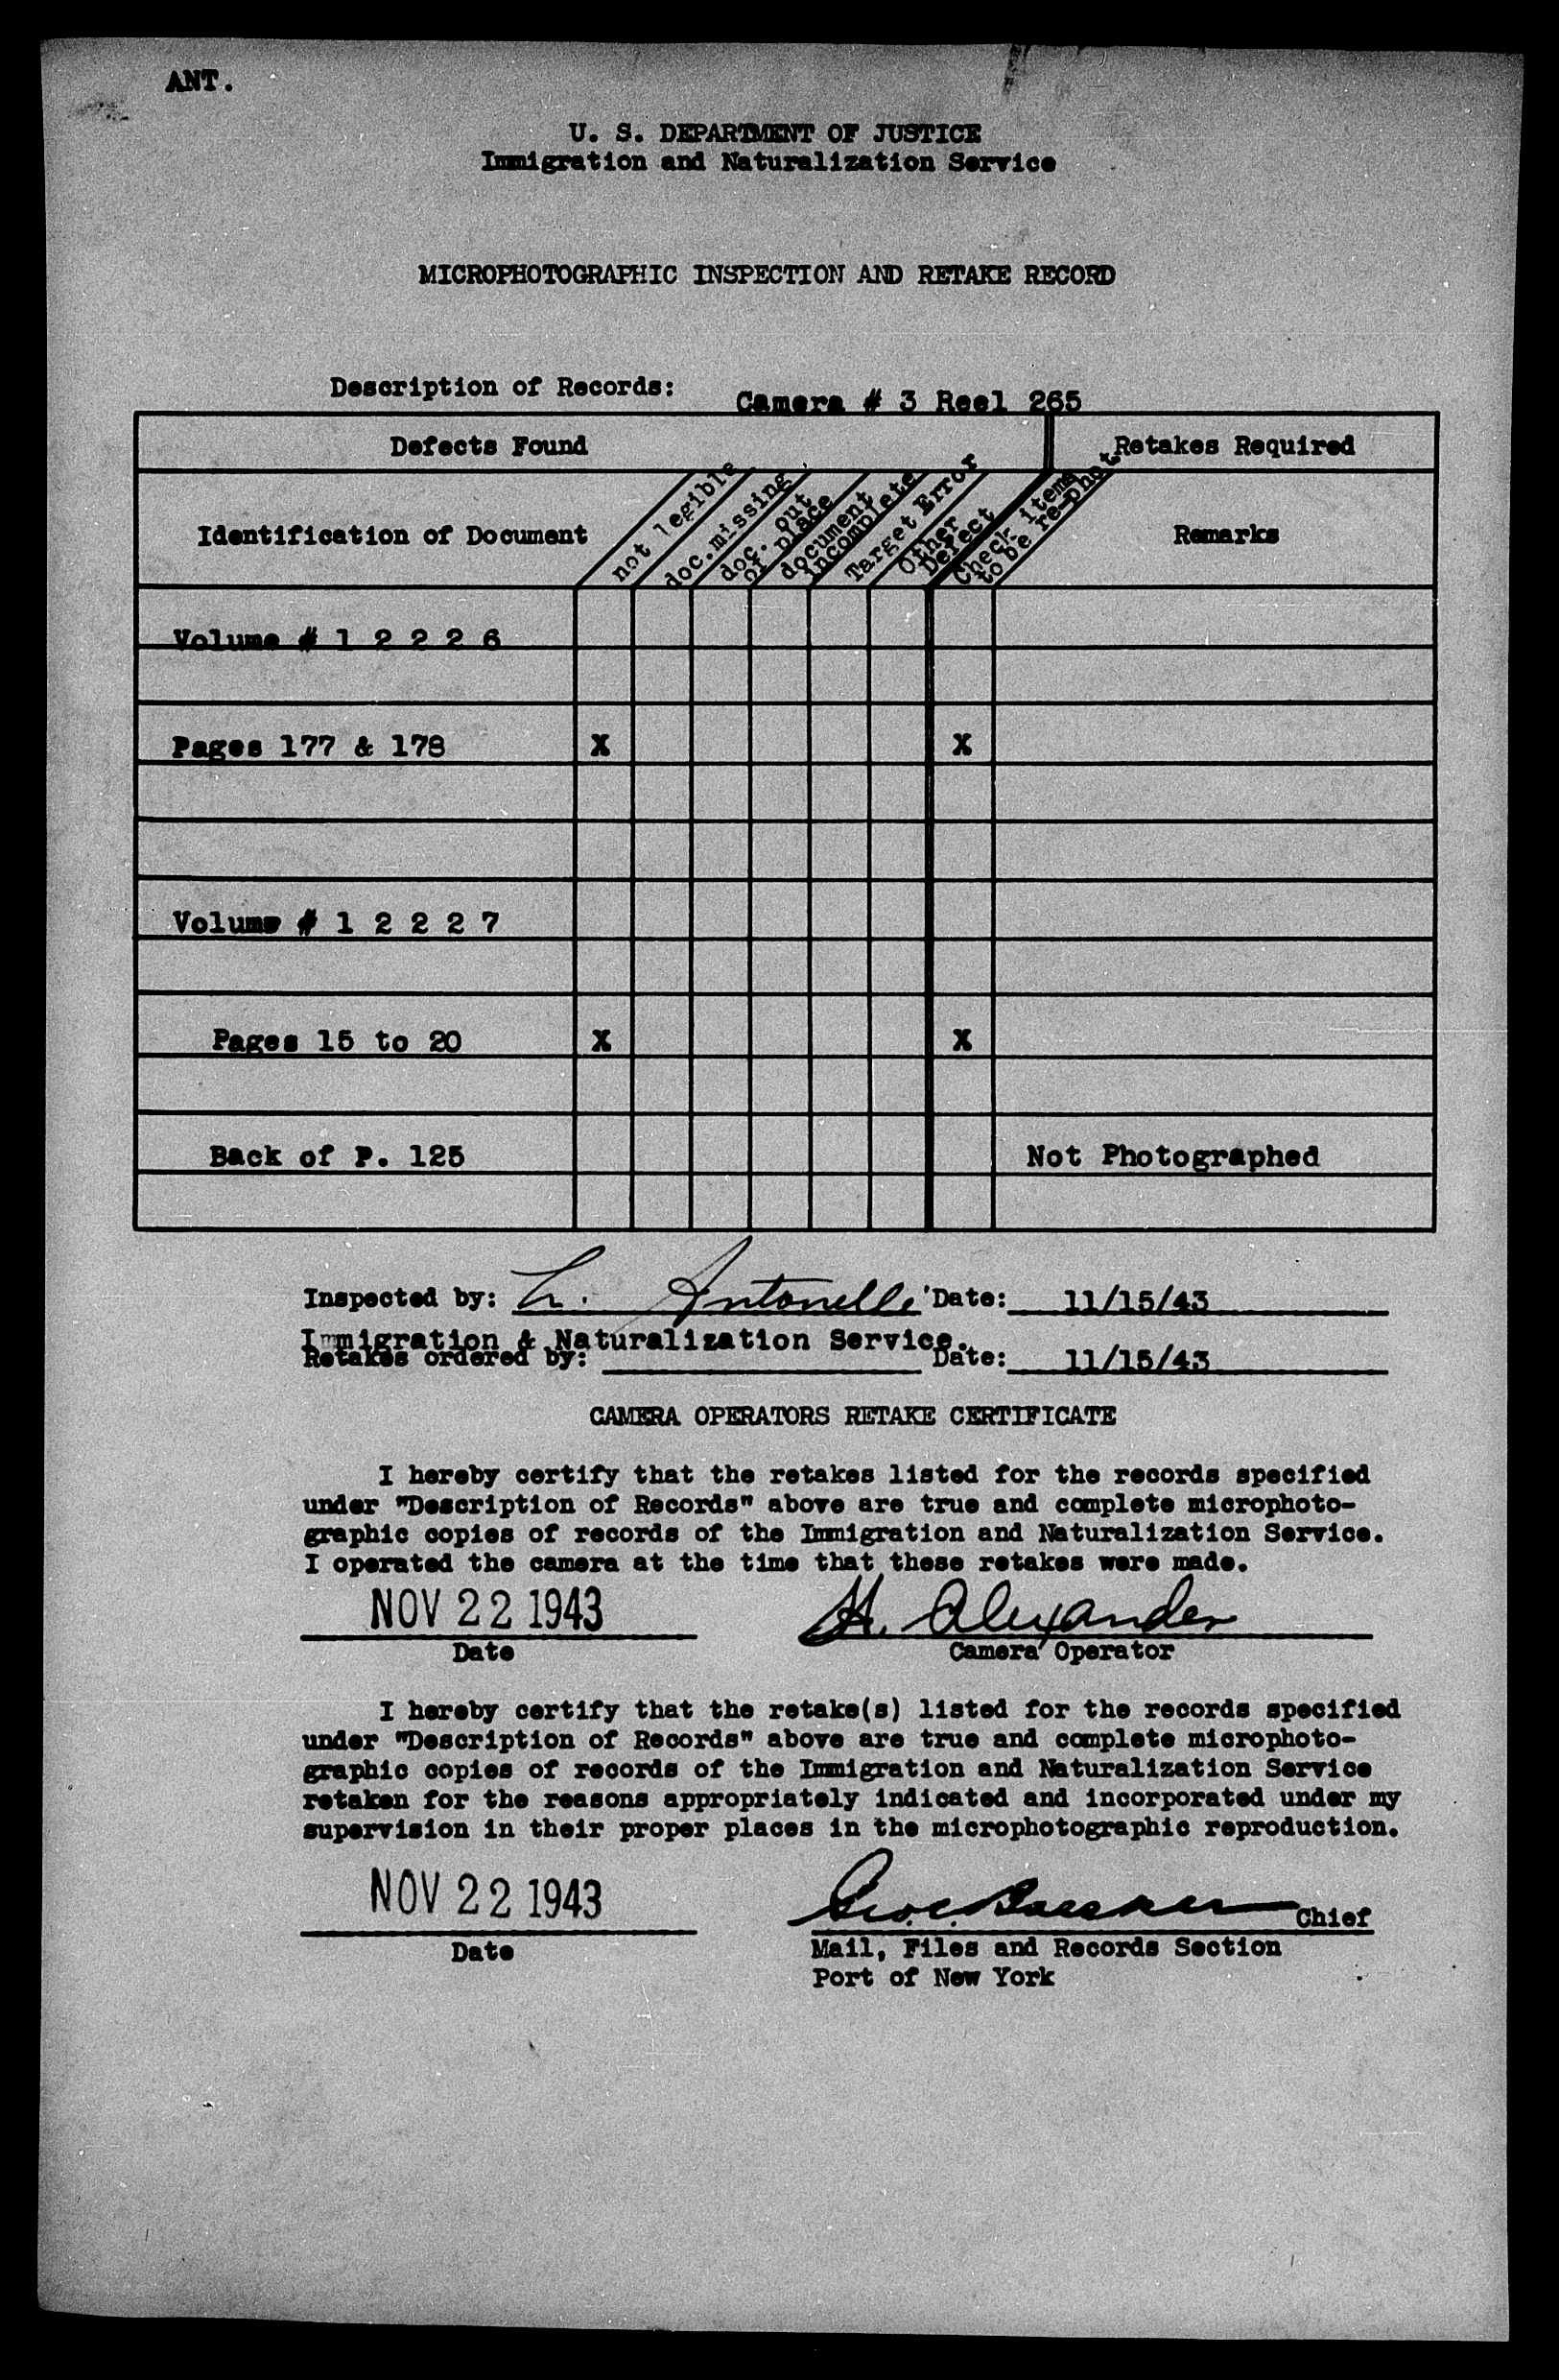 ANT.
U. S. DEPARTMENT OF JUSTICE
Immigration and Naturalization Service
MICROPHOTOGRAPHIC INSPECTION AND RETAKE RECORD
Description of Records: Camera # 3 Reel 265
Defects Found Retakes Required
Identification of Document not legible doc.missing doc. out of place document incomplete Target Error Other Defect Check items to be re-phot. Remarks
Volume # 1 2 2 2 6
Pages 177 & 178 X X
Volume # 1 2 2 2 7
Pages 15 to 20 X X
Back of P. 125 Not Photographed
Inspected by: L. Antonelli Date: 11/15/43
Immigration & Naturalization Service.
Retakes ordered by: Date: 11/15/43
CAMERA OPERATORS RETAKE CERTIFICATE
I hereby certify that the retakes listed for the records specified
under "Description of Records" above are true and complete microphoto-
graphic copies of records of the Immigration and Naturalization Service.
I operated the camera at the time that these retakes were made.
NOV 22 1943 H. Alexander
Date Camera Operator
I hereby certify that the retake(s) listed for the records specified
under "Description of Records" above are true and complete microphoto-
graphic copies of records of the Immigration and Naturalization Service
retaken for the reasons appropriately indicated and incorporated under my
supervision in their proper places in the microphotographic reproduction.
NOV 22 1943 Chief
Date Mail, Files and Records Section
Port of New York